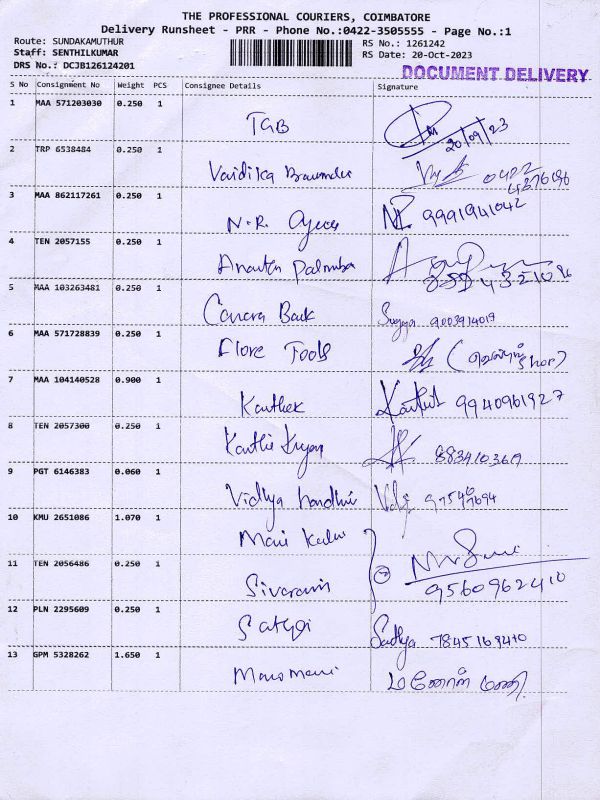 THE PROFESSIONAL COURIERS, COIMBATORE
Delivery Runsheet - PRR - Phone No.:0422-3505555 - Page No.:1
Route: SUNDAKAMUTHUR
RS No.: 1261242
Staff: SENTHILKUMAR
RS Date: 20-Oct-2023
DRS No.: DCJB126124201
DOCUMENT DELIVERY
S No Consignment No Weight PCS Consignee Details Signature
1 MAA 571203030 0.250 1
TGB 20/09/23
2 TRP 6538484 0.250 1
Vaidika 0422
3 MAA 862117261 0.250 1
N.R. 9991941042
4 TEN 2057155 0.250 1
Ananth
5 MAA 103263481 0.250 1
Canara Bank 9003914017
6 MAA 571728839 0.250 1
Flore Tools
7 MAA 104140528 0.900 1
Karthik 9940961927
8 TEN 2057300 0.250 1
9 PGT 6146383 0.060 1
Vidhya
10 KMU 2651086 1.070 1
Mani
11 TEN 2056486 0.250 1
Sivaram 9560962410
12 PLN 2295609 0.250 1
Sathya Sathya 7845169410
13 GPM 5328262 1.650 1
Mano Mani மனோஜ் மணி